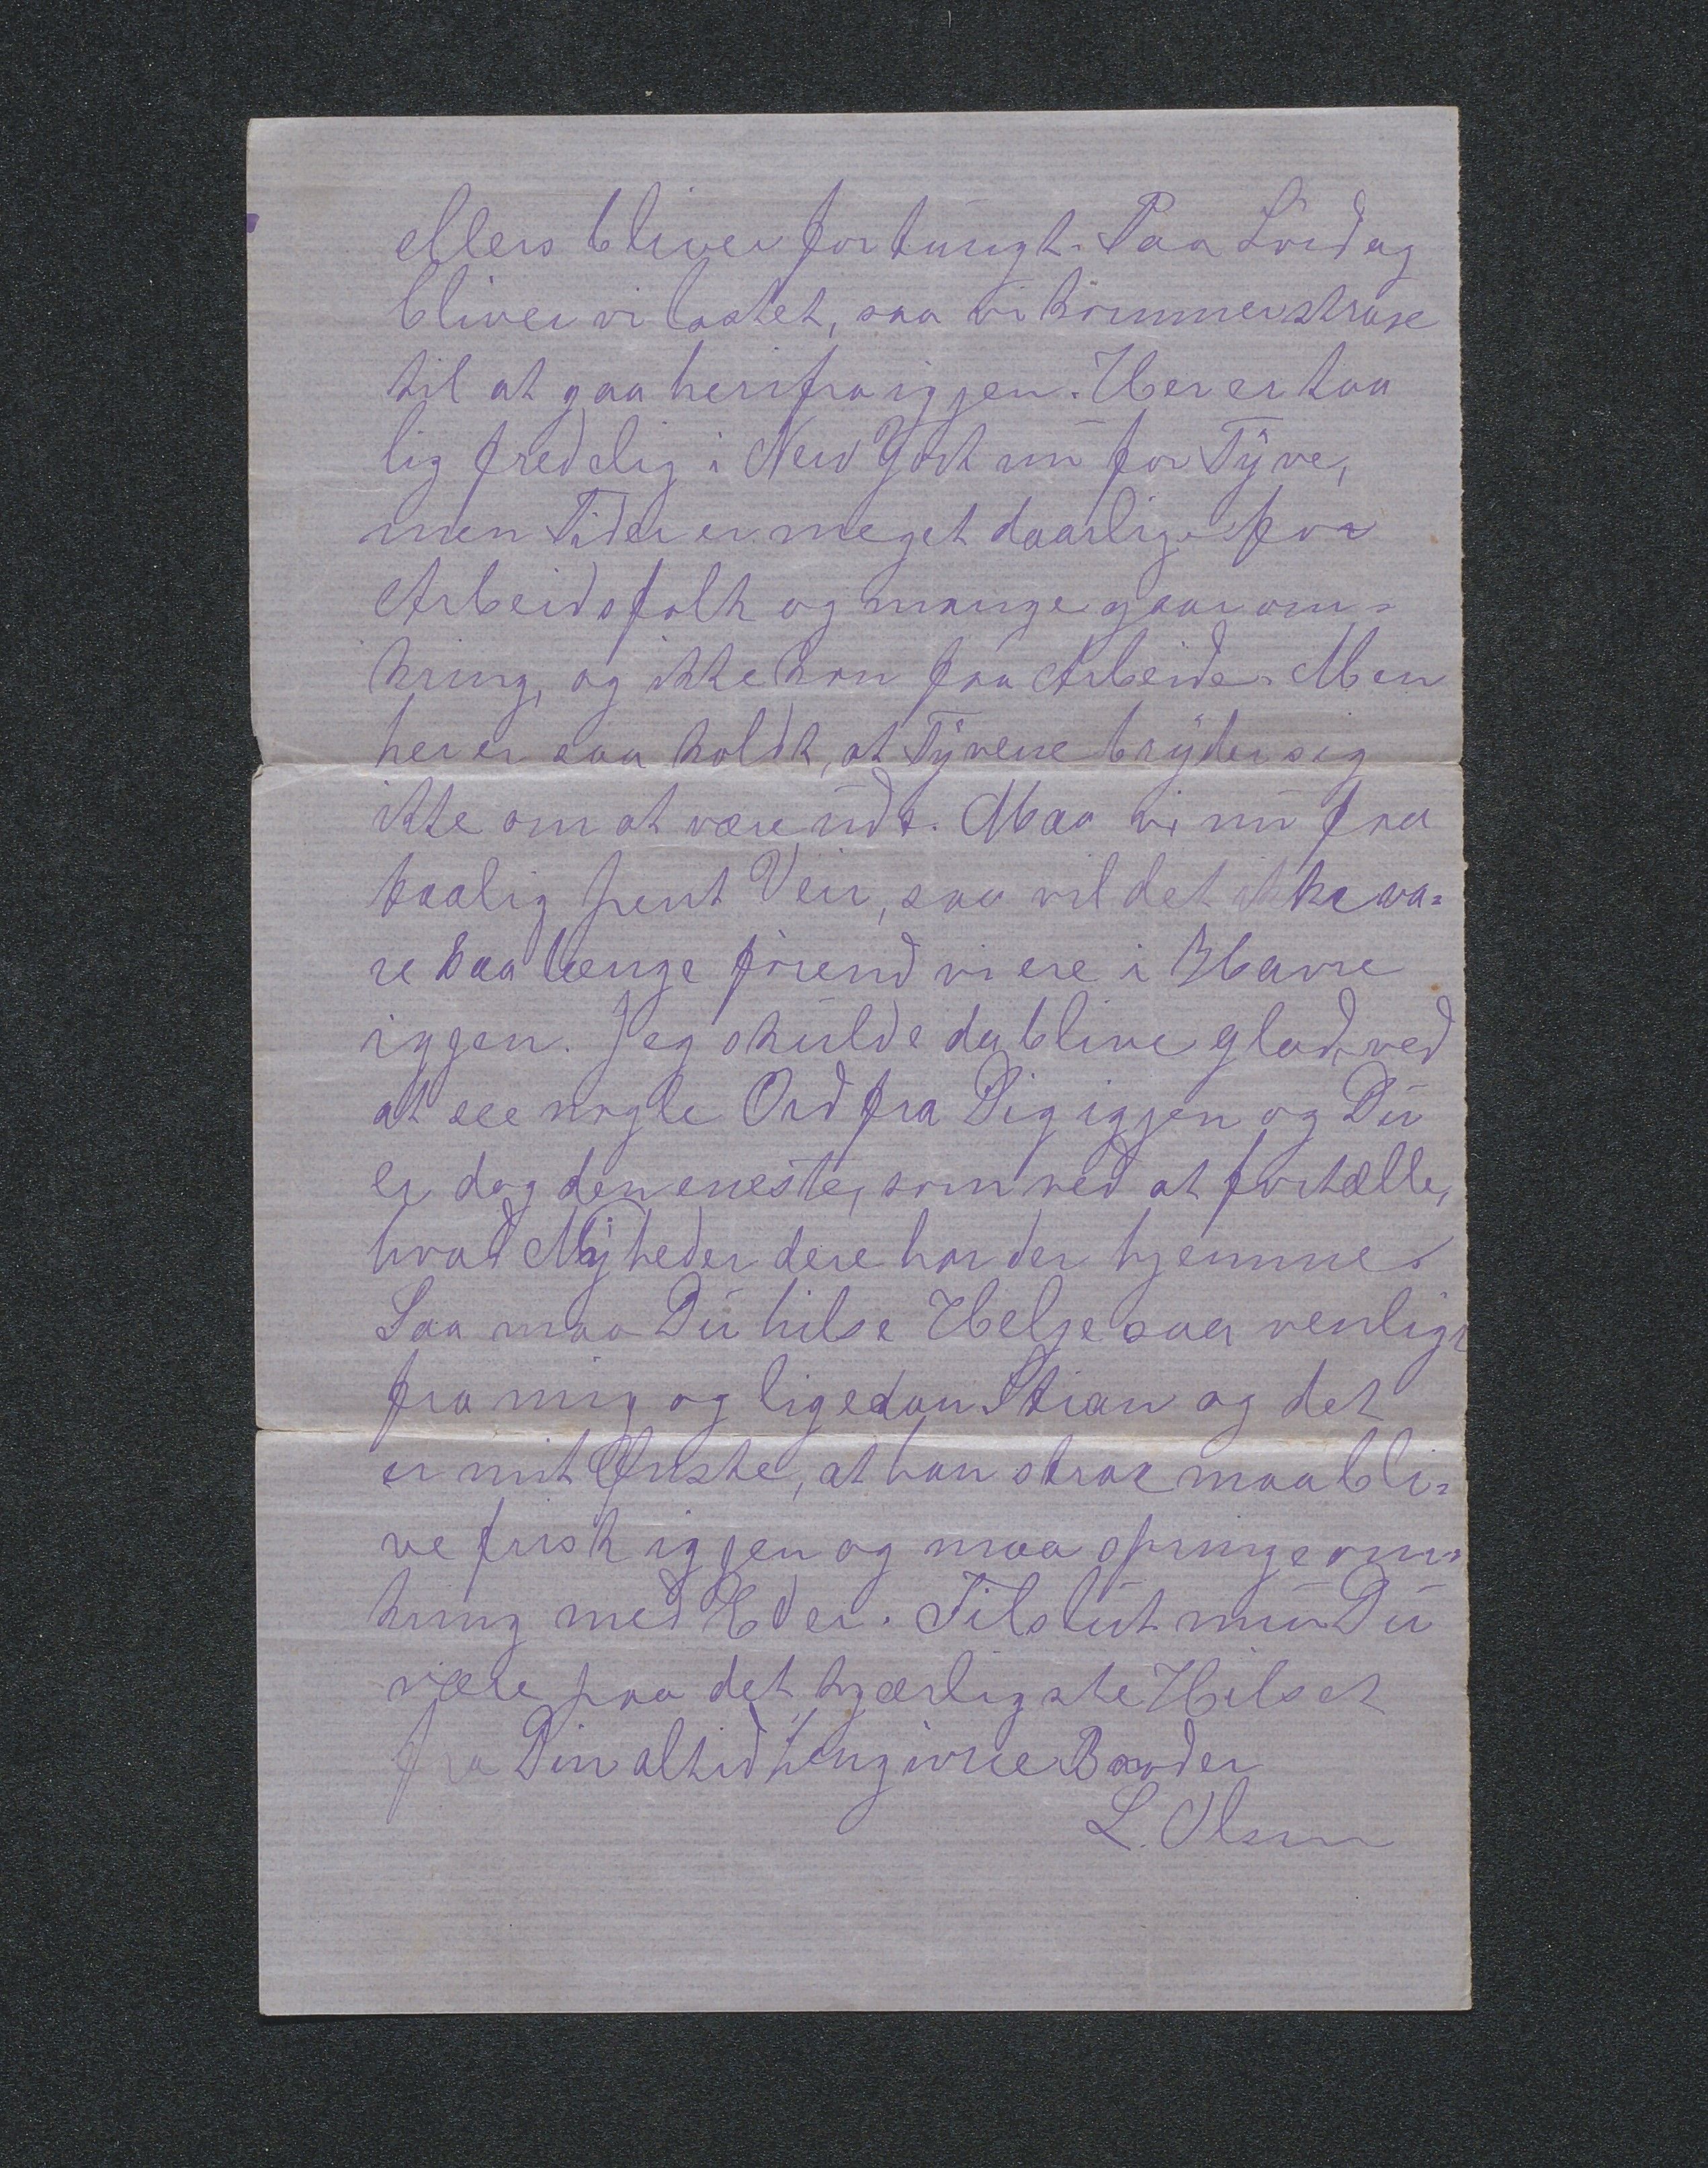 ellers bliver for tungt. Paa Lørdag
bliver vi lastet, saa vi kommer strax
til at gaa herifra igjen. Her er taa
lig fredelig i New York nu for Tyve,
men Tider er meget daarlige for
Arbeidsfolk og mange gaar om=
kring, og ikke kan faa Arbeide. Men
her er saa koldt, at Tyvene bryder sig
ikke om at være ude. Maa vi nu faa
taalig pent Veir, saa vil det ikke va=
re saa længe førend vi ere i Havre
iggen. Jeg skulde da blive glad, ved
at see nogle Ord fra Dig igjen og Du
er dog den eneste, som ved at fortælle,
hvad Nyheder dere har der hjemme.
Saa maa Du hilse Helje saa venlig
fra mig og ligedan Stian og det
er mit Ønske, at han strax maa bli=
ve frisk iggen og maa springe om=
kring med Eder. Tilslut maa Du
være paa det kjærligste Hilset
fra Din altid hengivne Broder
L. Olsen